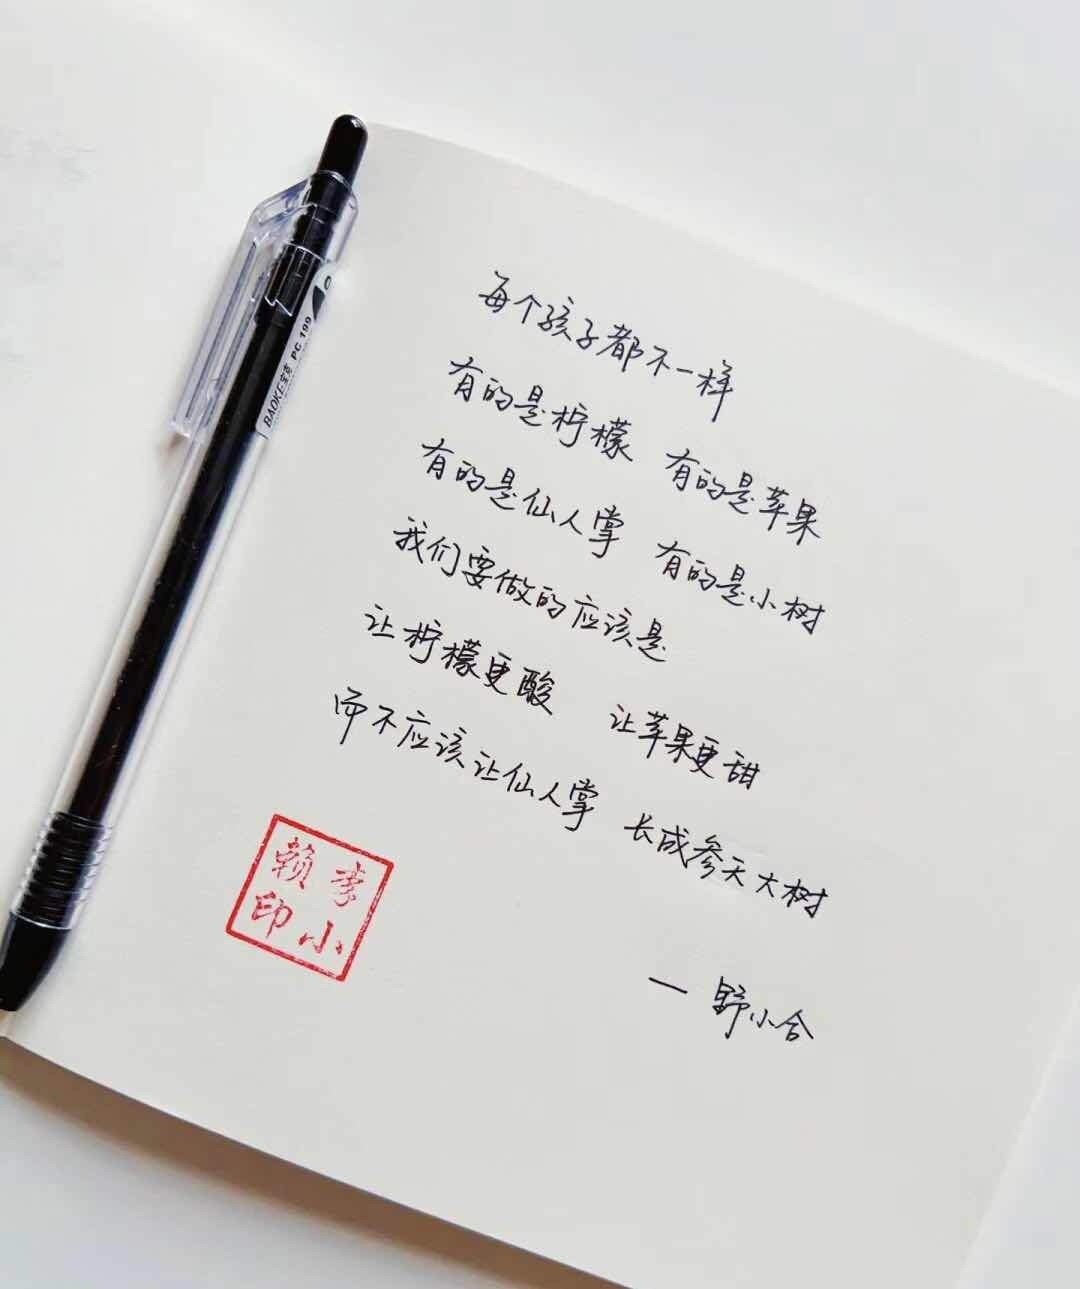 每个孩子都不一样
有的是柠檬 有的是苹果
有的是仙人掌 有的是小树
我们要做的应该是
让柠檬更酸 让苹果更甜
而不应该让仙人掌 长成参天大树
— 野小合
李小
赖印
BAOKE宝克 PC 199